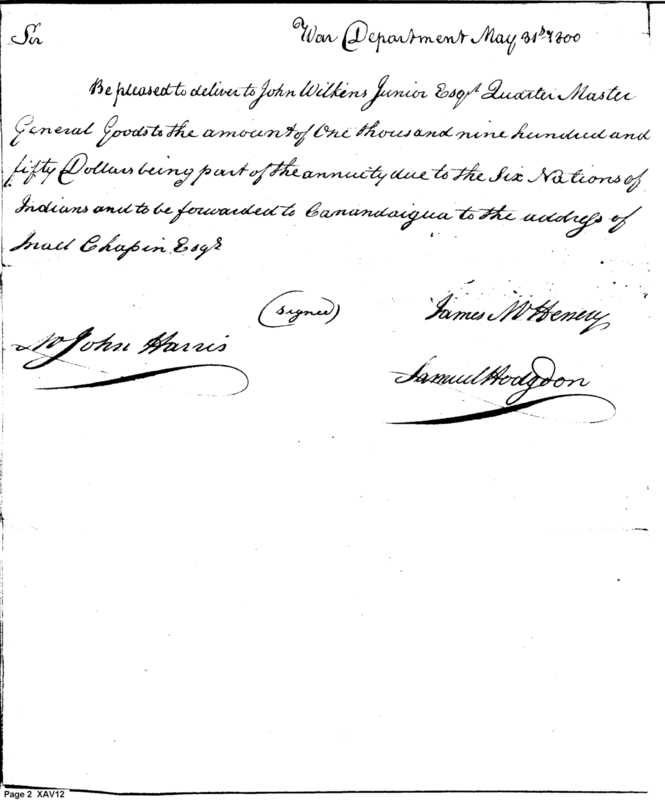 Sir War Department May 31st 1800
Be pleased to deliver to John Wilkins Junior Esqr Quarter Master
General Goods to the amount of One thousand nine hundred and
fifty Dollars being part of the annuity due to the Six Nations of
Indians and to be forwarded to Canandaigua to the address of
Chapin Esqr
(signed) James McHenery
Mr John Harris
Samuel Hodgdon
Page 2 XAV12